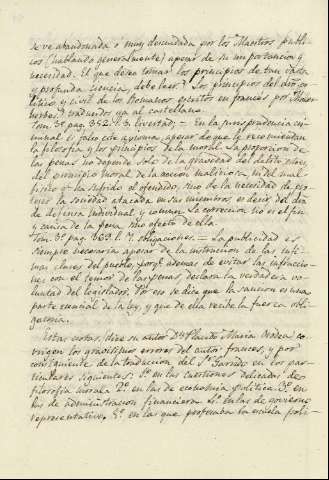 se ve abandonada ó muy descuidada por los Maestros publi-
cos (hablando generalmente) apesar de su importancia y
necesidad. El que desea tomar los principios de tan vasta
y profunda ciencia, debe leer los principios del dro. po-
litico y civil de los Romanos escritos en frances por
traducidos ya al castellano.
Tom. 3º pag. 352. Livertad; = En la jurisprudencia cri-
minal es falso este axioma, apesar de que le recomiendan
la filosofia y los principios de la moral. La proporcion de
las penas no depende solo de la gravedad del delito, ni
del principio moral de la accion maliciosa, ni del mal
fisico que ha sufrido el ofendido, sino de la necesidad de pro-
teger la sociedad atacada en sus miembros es decir del dro.
de defensa individual y comun. La correccion no es el fin
y causa de la pena, sino efecto de ella.
Tom. 3º pag. 363. Obligaciones. = La publicidad es
siempre necesaria apesar de la instruccion de las infi-
mas clases del pueblo, porqe. ademas de evitar las infraccio-
nes con el temor de las penas, declara la verdadera vo-
luntad del legislador. Por eso se dice que la sancion es una
parte esencial de la ley, y que de ella recibe la fuerza obli-
gatoria.
Estas notas, dice su autor Dn. Plácido Maria Orodea co-
rrigen los gravisimos errores del autor frances, y por
consiguiente de la traduccion del Sr. Garrido en los par-
ticulares siguientes: 1º en las cuestiones delicadas de
filosofia moral: 2º en las de economia politica: 3º en
las de administracion financiera: 4º en las de govierno
representativo: 5º en las que profesaba la escuela poli-